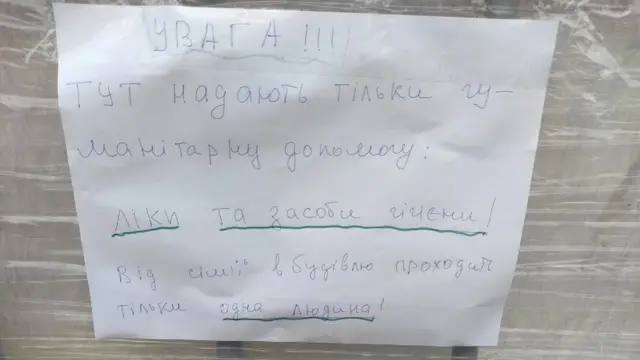 УВАГА !!!
ТУТ надають тільки гу-
манітарну допомогу:
ліки та засоби гігієни!
Від сімії в будівлю проходить
тільки одна людина!